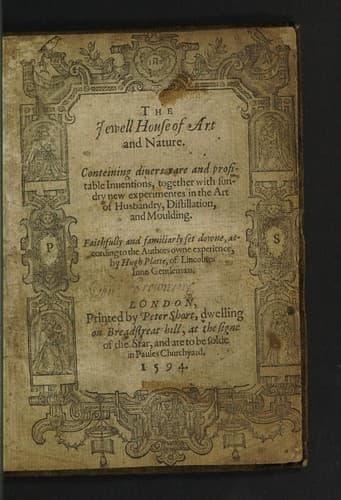 THE
Jewell House of Art
and Nature.
Conteining divers rare and profi-
table Inuentions, together with sun-
dry new experimentes in the Art
of Husbandry, Distillation,
and Moulding.
Faithfully and familiarly set downe, ac-
cording to the Authors owne experience,
by Hugh Platte, of Lincolnes
Inne Gentleman.
P S
LONDON,
Printed by Peter Short, dwelling
on Breadstreat hill, at the signe
of the Star, and are to be solde
in Paules Churchyard.
1594.